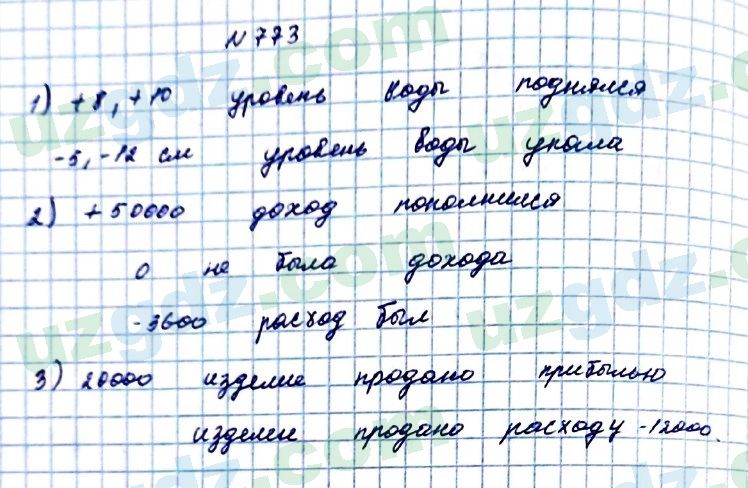 N 773
1) +8, +10 уровень воды поднялся
-5, -12 см уровень воды упала
2) +50000 доход пополнился
0 не была дохода
-3600 расход был
3) 20000 изделие продано прибылью
изделие продано расходу -12000.
uzgdz.com